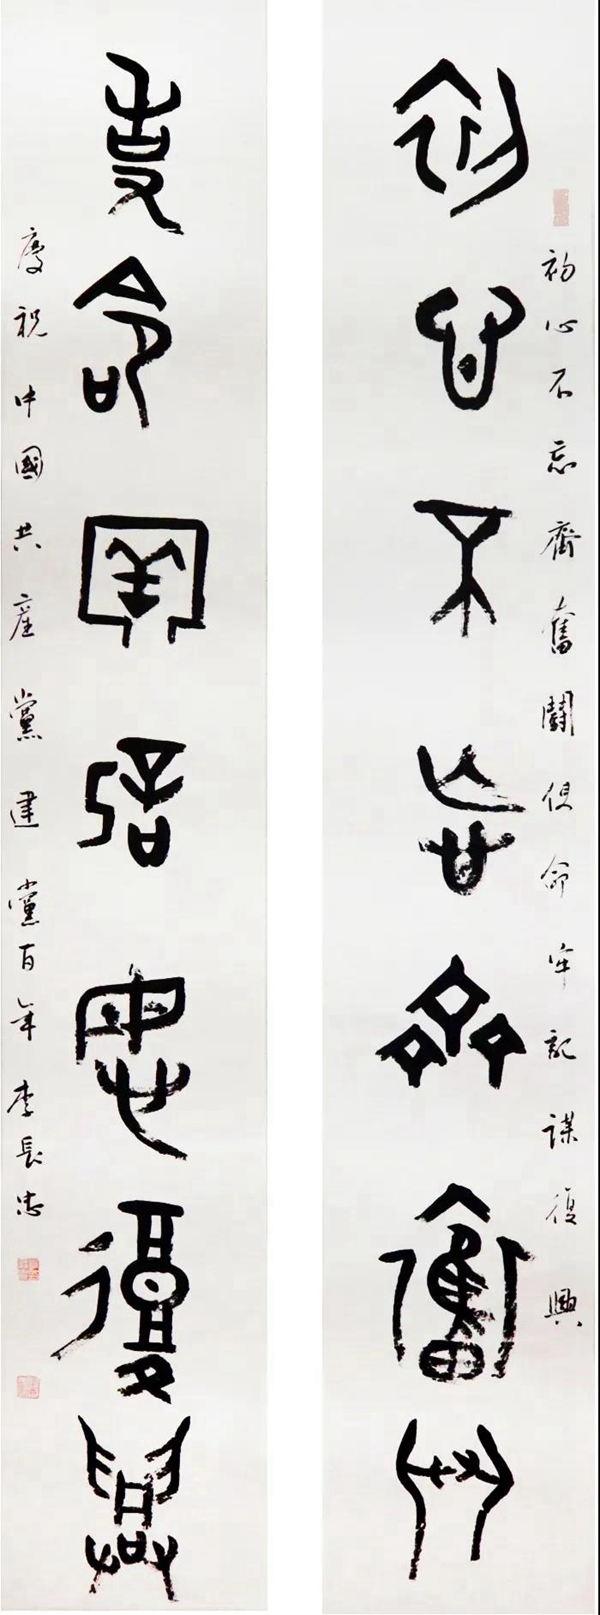 初心不忘齊奮鬪使命牢記謀復興
初心不忘齊奮鬥
使命牢記謀復興
慶祝中國共產黨建黨百年李長忠